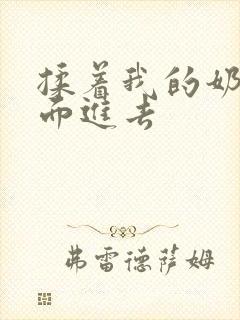 揉着我的奶
而進去
弗雷德萨姆